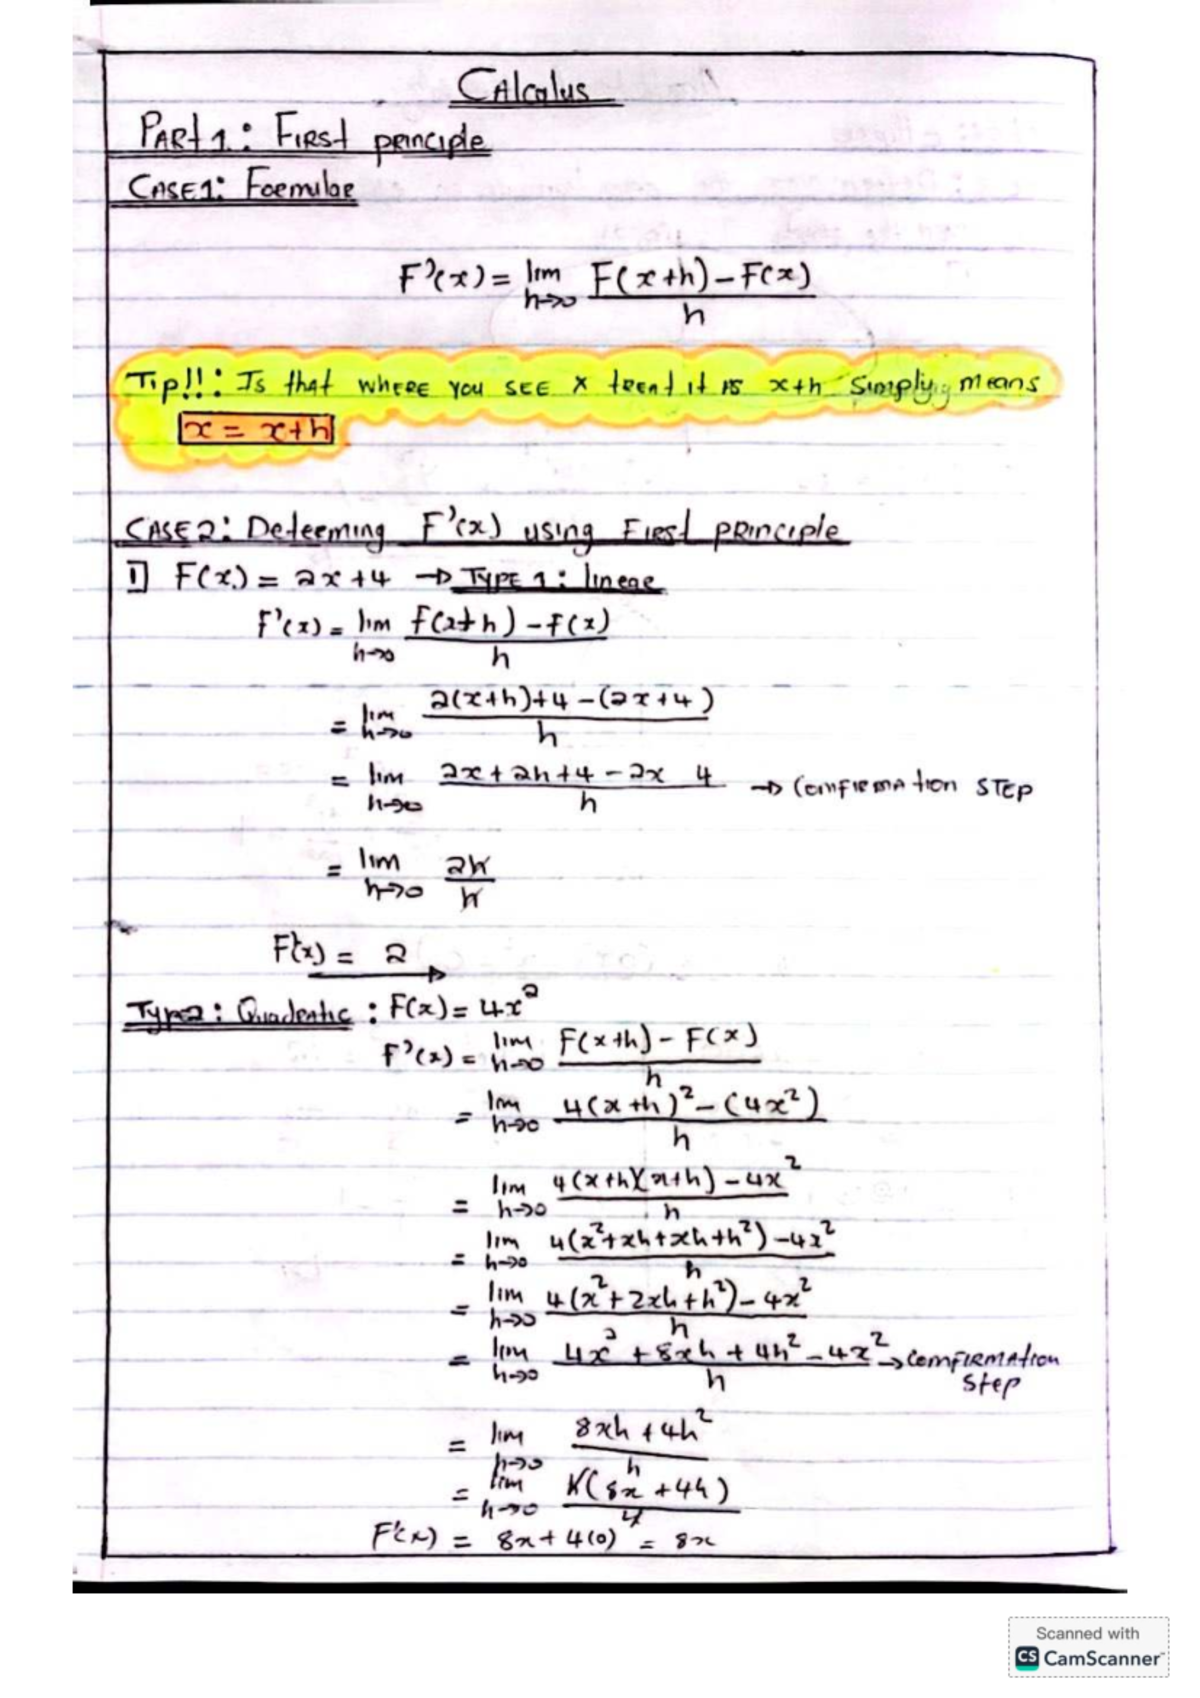 Calculus
PART 1: First principle
CASE1: Formulae
F'(x) = lim h→0 F(x+h) - F(x) / h
Tip!!: Is that WHERE YOU SEE x treat it is x+h Simply, Means
x = x+h
CASE2: Determing F'(x) using First principle
1] F(x) = 2x+4 → TYPE 1: linear
F'(x) = lim h→0 f(x+h) - f(x) / h
= lim h→0 2(x+h)+4-(2x+4) / h
= lim h→0 2x+2h+4-2x 4 / h → Comfirmation STEP
= lim h→0 2h / h
F'(x) = 2
Type2: Quadratic : F(x) = 4x²
F'(x) = lim h→0 F(x+h) - F(x) / h
= lim h→0 4(x+h)² - (4x²) / h
= lim h→0 4(x+h)(x+h) - 4x² / h
= lim h→0 4(x²+xh+xh+h²) - 4x² / h
= lim h→0 4(x²+2xh+h²) - 4x² / h
= lim h→0 4x² + 8xh + 4h² - 4x² / h → COMFIRMATION Step
= lim h→0 8xh + 4h² / h
= lim h→0 h(8x + 4h) / h
F'(x) = 8x + 4(0) = 8x
Scanned with
CS CamScanner